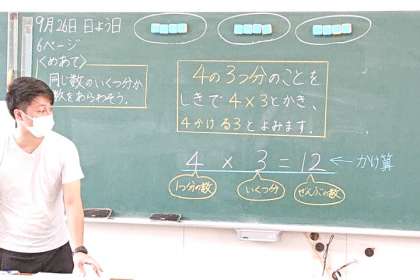 9月26日 日よう日
6ページ
<めあて>
同じ数のいくつ分か
数をあらわそう.
4の3つ分のことを
しきで4×3とかき、
4かける3とよみます.
4 × 3 = 12 ←かけ算
1つ分の数 いくつ分 ぜんぶの数